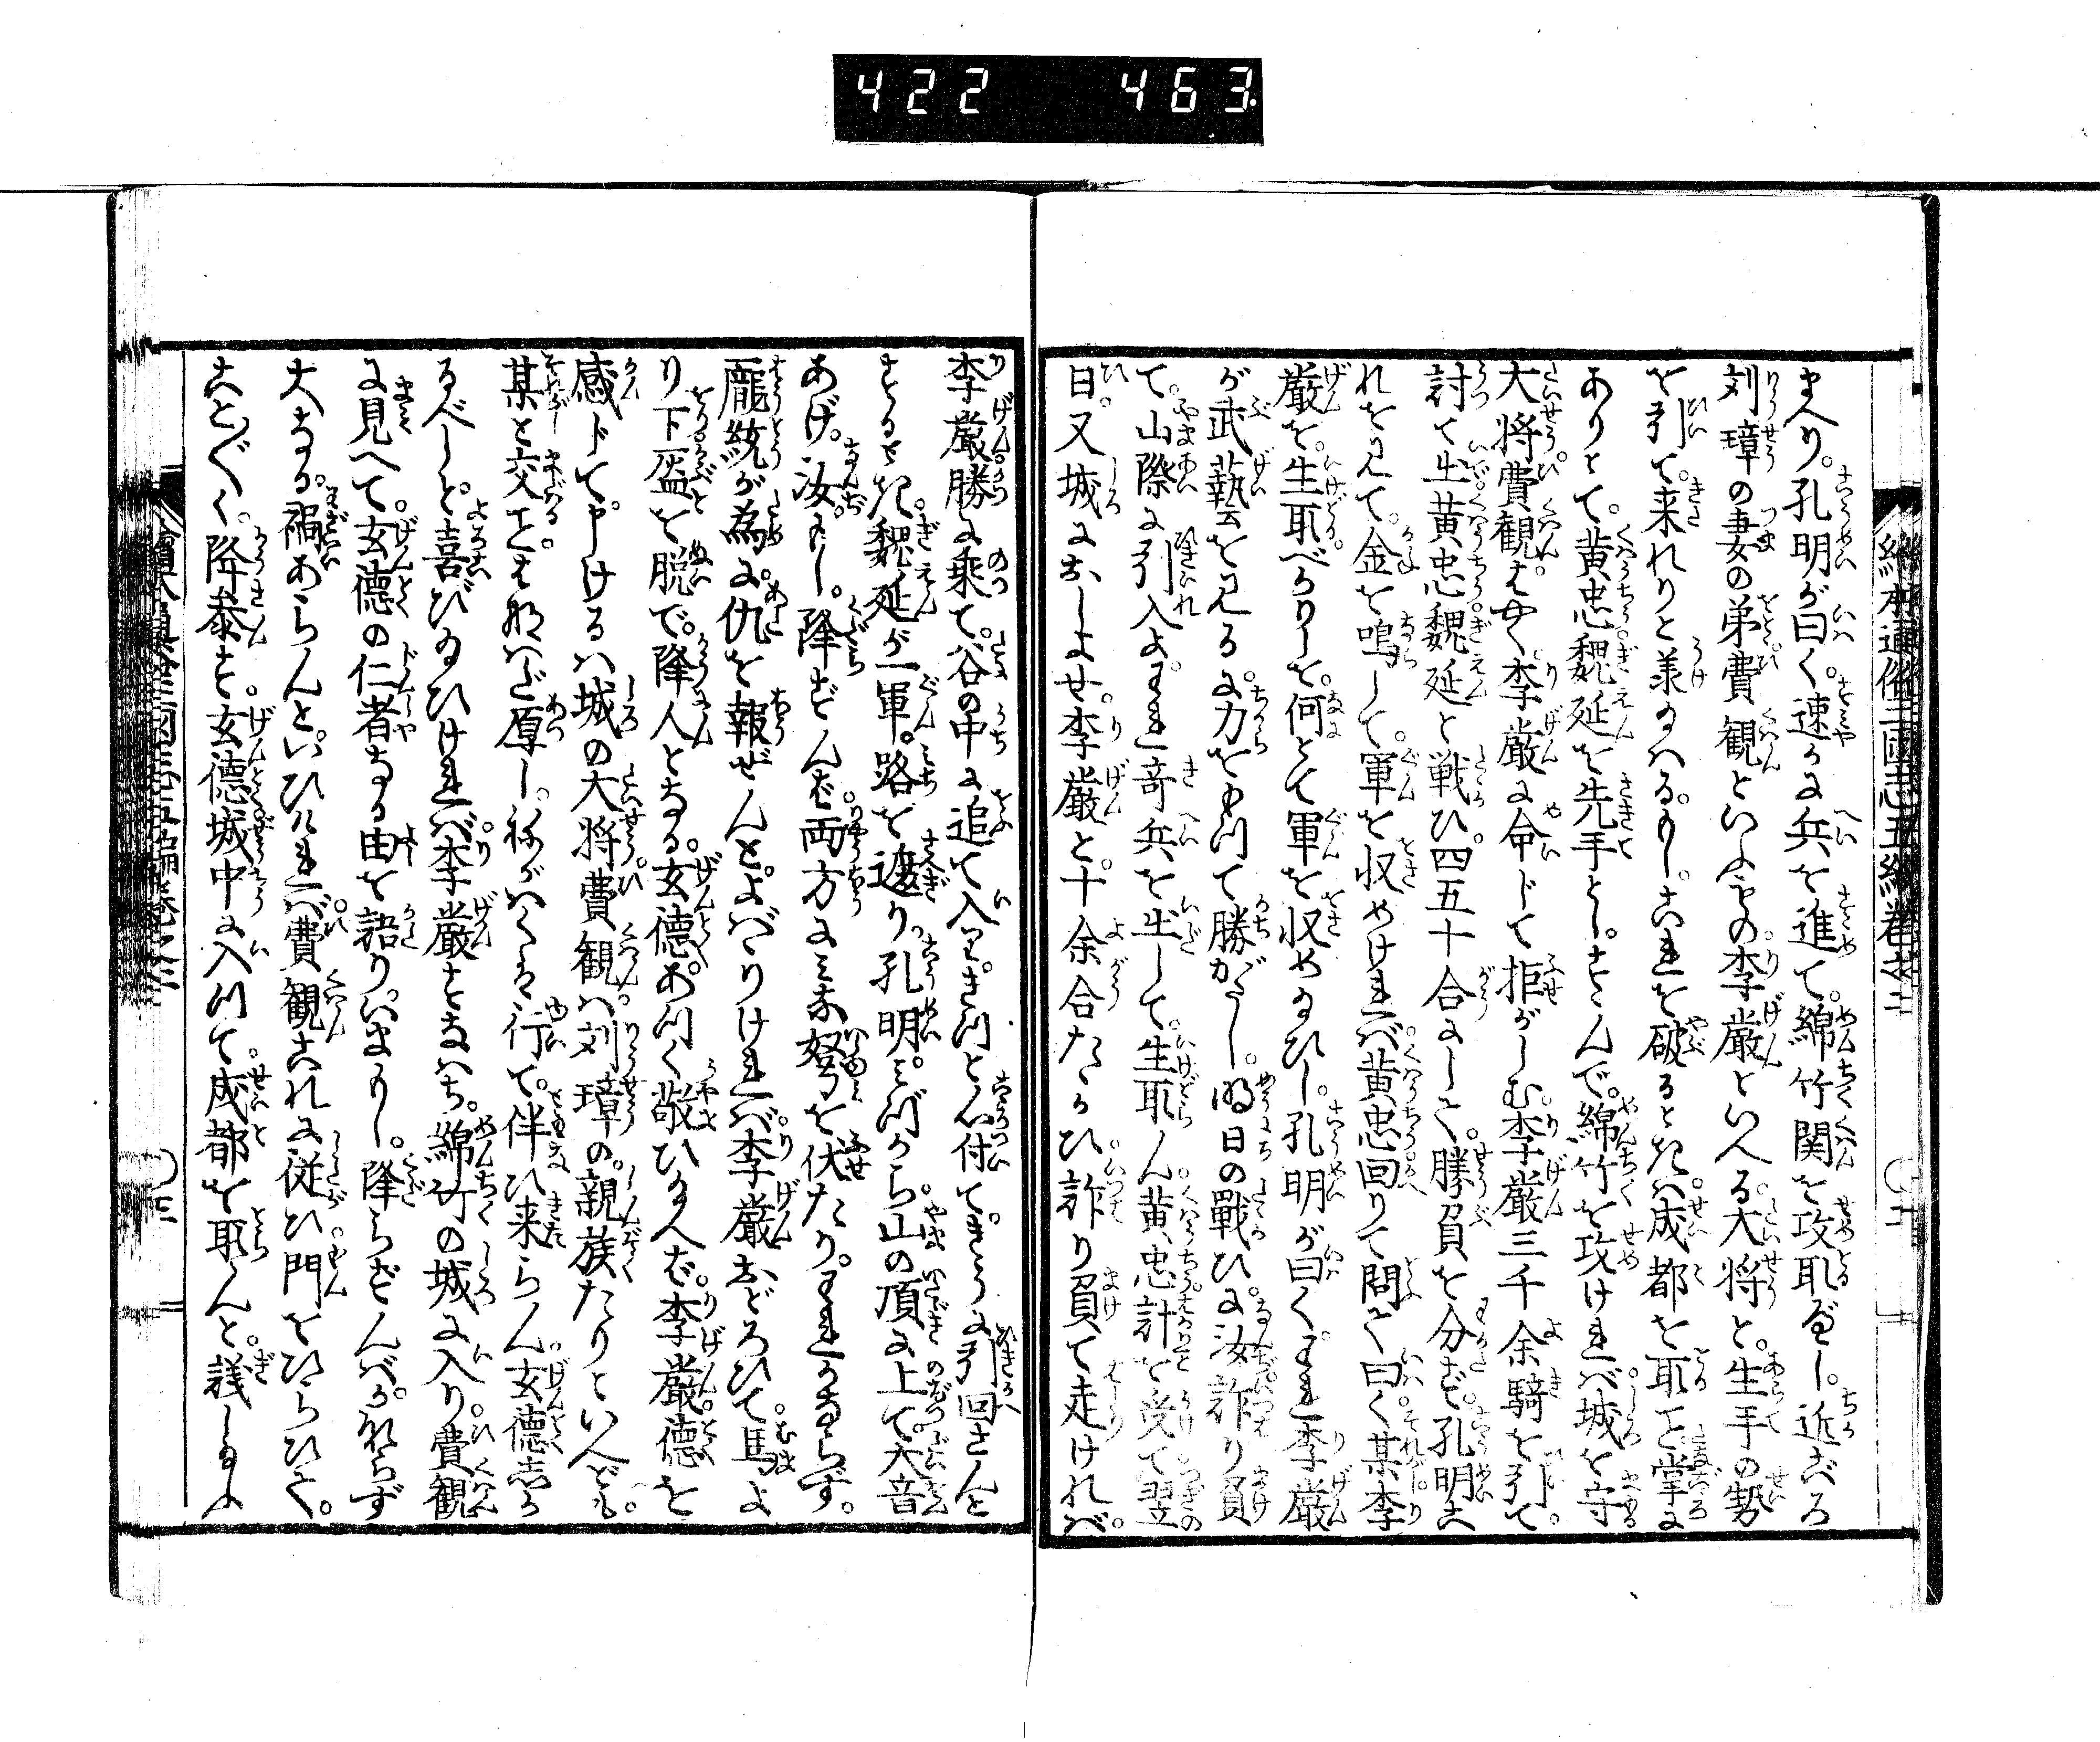 422 463
絵本通俗三国志五編巻之二
まへり。孔明が曰く。速に兵を進て。綿竹関を攻取べし。近ごろ
刘璋の妻の弟費観といふもの李厳といへる大将と。生手の勢
を引て。来れりと羕る。これを破るときハ成都を取こと掌に
ありとて。黄忠魏延を先手とし。すゝんで。綿竹を攻けれバ城を守
大将費観。李厳に命じて拒がしむ李厳三千余騎を引て。
討て出黄忠魏延と戦ひ四五十合にして。勝負を分ず。孔明こ
れを見て。金を鳴して。軍を収めけれバ黄忠回りて問て曰く某李
厳を。生取べかりしを。何とて軍を収め給ひし。孔明が曰くわれ李厳
が武藝を見るに力をもつて勝がたし。明日の戦ひに汝詐り負
て。山際に引入よわれ竒兵を出して。生取ん黄忠計を受て翌
日。又城におしよせ李厳と十余合たゝかひ詐り負て走けれバ。
李厳勝に乗て。谷の中に追て入
魏延が一軍。路を遮り。孔明みづから山の頂に上て大音
あげ。汝。降ずんば両方にミな弩を伏たり。われかならず。
龐統が為に。仇を報ぜんとよばゝりけれバ李厳おどろひて馬よ
り下盔を脱で。降人となる。玄徳あつく敬ひ給へば。李厳。徳を
感じて。申けるハ城の大将費観ハ。刘璋の親族たりといへども。
某と交こと厚し。行て。伴ひ来らん玄徳しか
るべしと喜び給ひけれバ李厳すなハち。綿竹の城に入り費観
に見へて。玄徳の仁者なる由を語り。降らずんバかならず
大なる。禍あらんといひけれバ費観これに従ひ門をひらひて。
ことごとく降参す。玄徳城中に入つて。成都を取んと議し給ふ
三